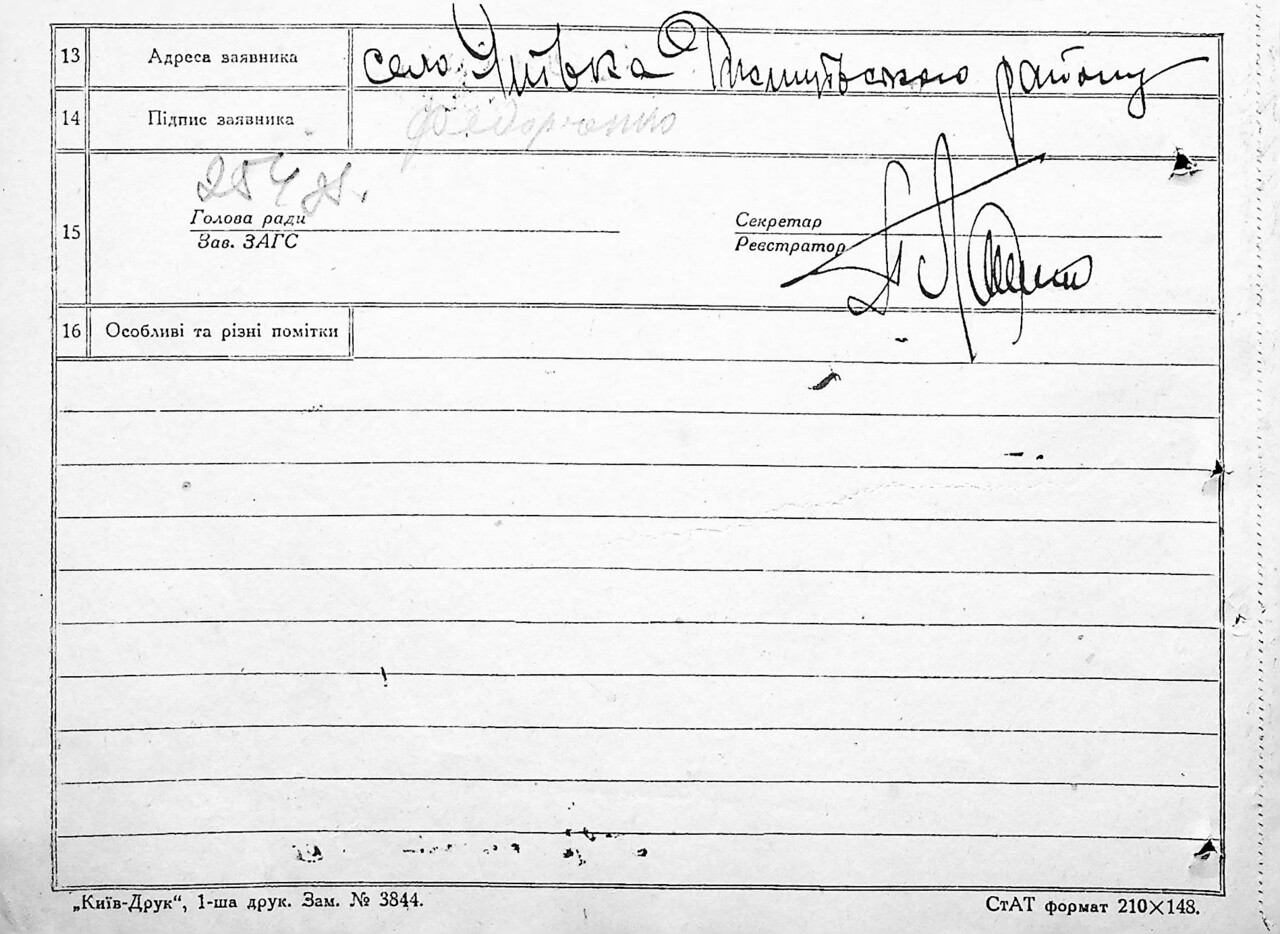 13 Адреса заявника село
району
14 Підпис заявника Федорченко
254
Голова ради
Зав. ЗАГС
15
Секретар
Реєстратор
16 Особливі та різні помітки
„Київ-Друк“, 1-ша друк. Зам. № 3844.
СтАТ формат 210×148.